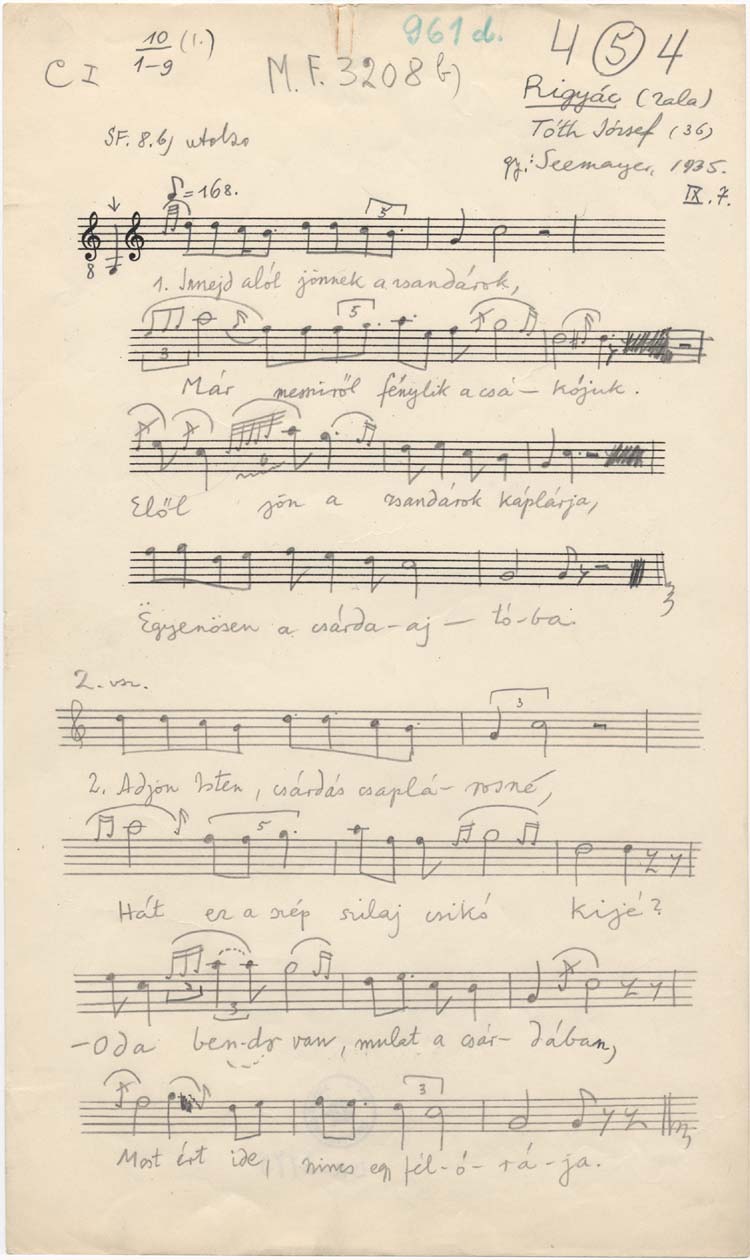 10 (1.)
1-9
961 d.
4 5 4
C I
M.F. 3208 b)
Rigyác (Zala)
Tóth József (36)
gy.: Seemayer, 1935.
IX. 7.
SF. 8. b) utolsó
=168.
5
8
1. Innejd alól jönnek a zsandárok,
3
5
Már messziről fénylik a csá- kójuk.
6
Elől jön a zsandárok káplárja,
Egyenösen a csárda-aj- tó-ba.
2. vsz.
3
2. Adjon Isten, csárdás csaplá- rosné,
5
Hát ez a szép szilaj csikó kijé?
3
3
-Oda ben-dr van, mulat a csár- dában,
3
Most ért ide, nincs egy fél-ó-rá-ja.